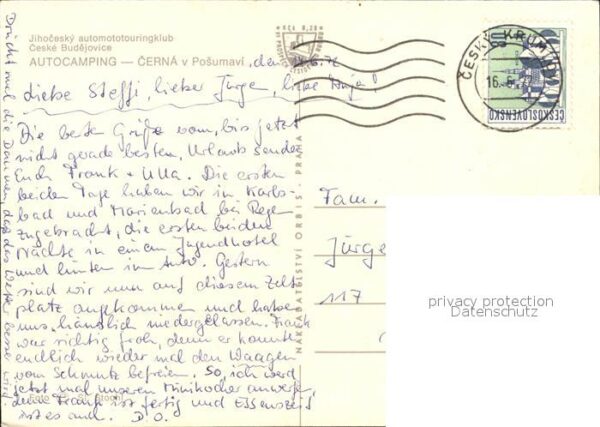 Jihočeský automototouringklub
České Budějovice
AUTOCAMPING — ČERNÁ v Pošumaví
, den 14.6.72
Liebe Steffi, lieber Jürgen, liebe Anja!
Die besten Grüße vom, bis jetzt
nicht gerade besten, Urlaub sendet
Euch Frank + Ulla. Die ersten
beiden Tage haben wir in Karls-
bad und Marienbad bei Regen
zugebracht, die ersten beiden
Nächte in einem Jugendhotel
und hinten im Auto. Gestern
sind wir nun auf diesem Zelt-
platz angekommen und haben
uns häuslich niedergelassen. Frank
war richtig froh, denn er konnte
endlich wieder mal den Waagen
vom Schmutz befreien. So, ich werd
jetzt mal unseren Minikocher anwerfen,
denn Frank ist fertig und Essenszeit
ist es auch. D. O.
Drückt mal die Daumen, daß das Wetter besser wird.
Foto
NAKLADATELSTVÍ ORBIS, PRAHA
ČESKÝ KRUMLOV
16.6.72
60
ČESKOSLOVENSKO
Fam.
Jürge
117
privacy protection
Datenschutz